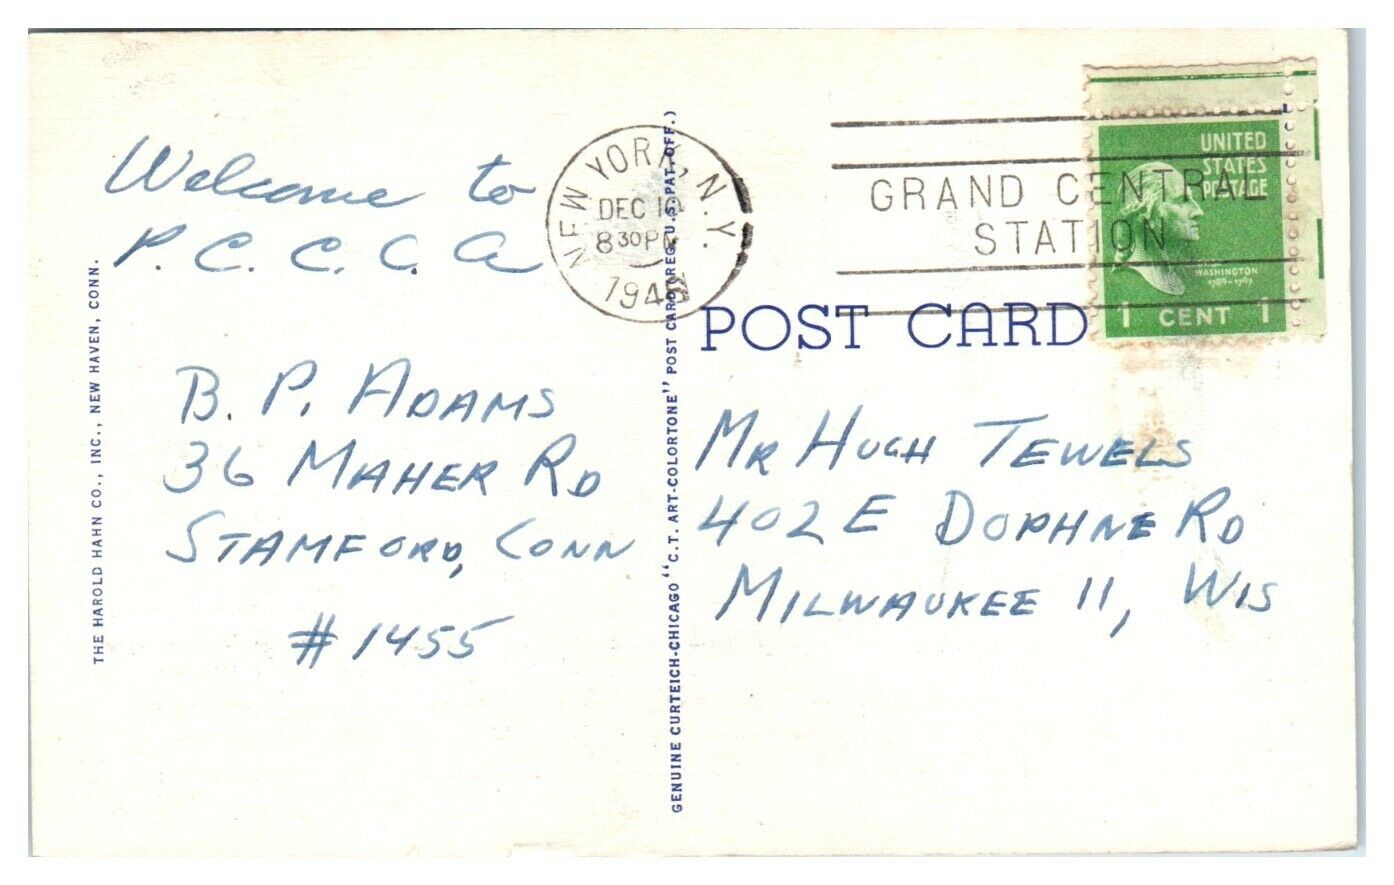 Welcome to
P. C. C. C. A
B. P. ADAMS
36 MAHER RD
STAMFORD, CONN
#1455
THE HAROLD HAHN CO., INC., NEW HAVEN, CONN.
GENUINE CURTEICH-CHICAGO "C.T. ART-COLORTONE" POST CARD (REG. U.S. PAT. OFF.)
NEW YORK, N.Y.
DEC
8 30 PM
GRAND CENTRAL
STATION
UNITED
STATES
POSTAGE
WASHINGTON
1789-1797
1 CENT 1
POST CARD
MR HUGH TEWELS
402 E DOPHNE RD
MILWAUKEE 11, WIS